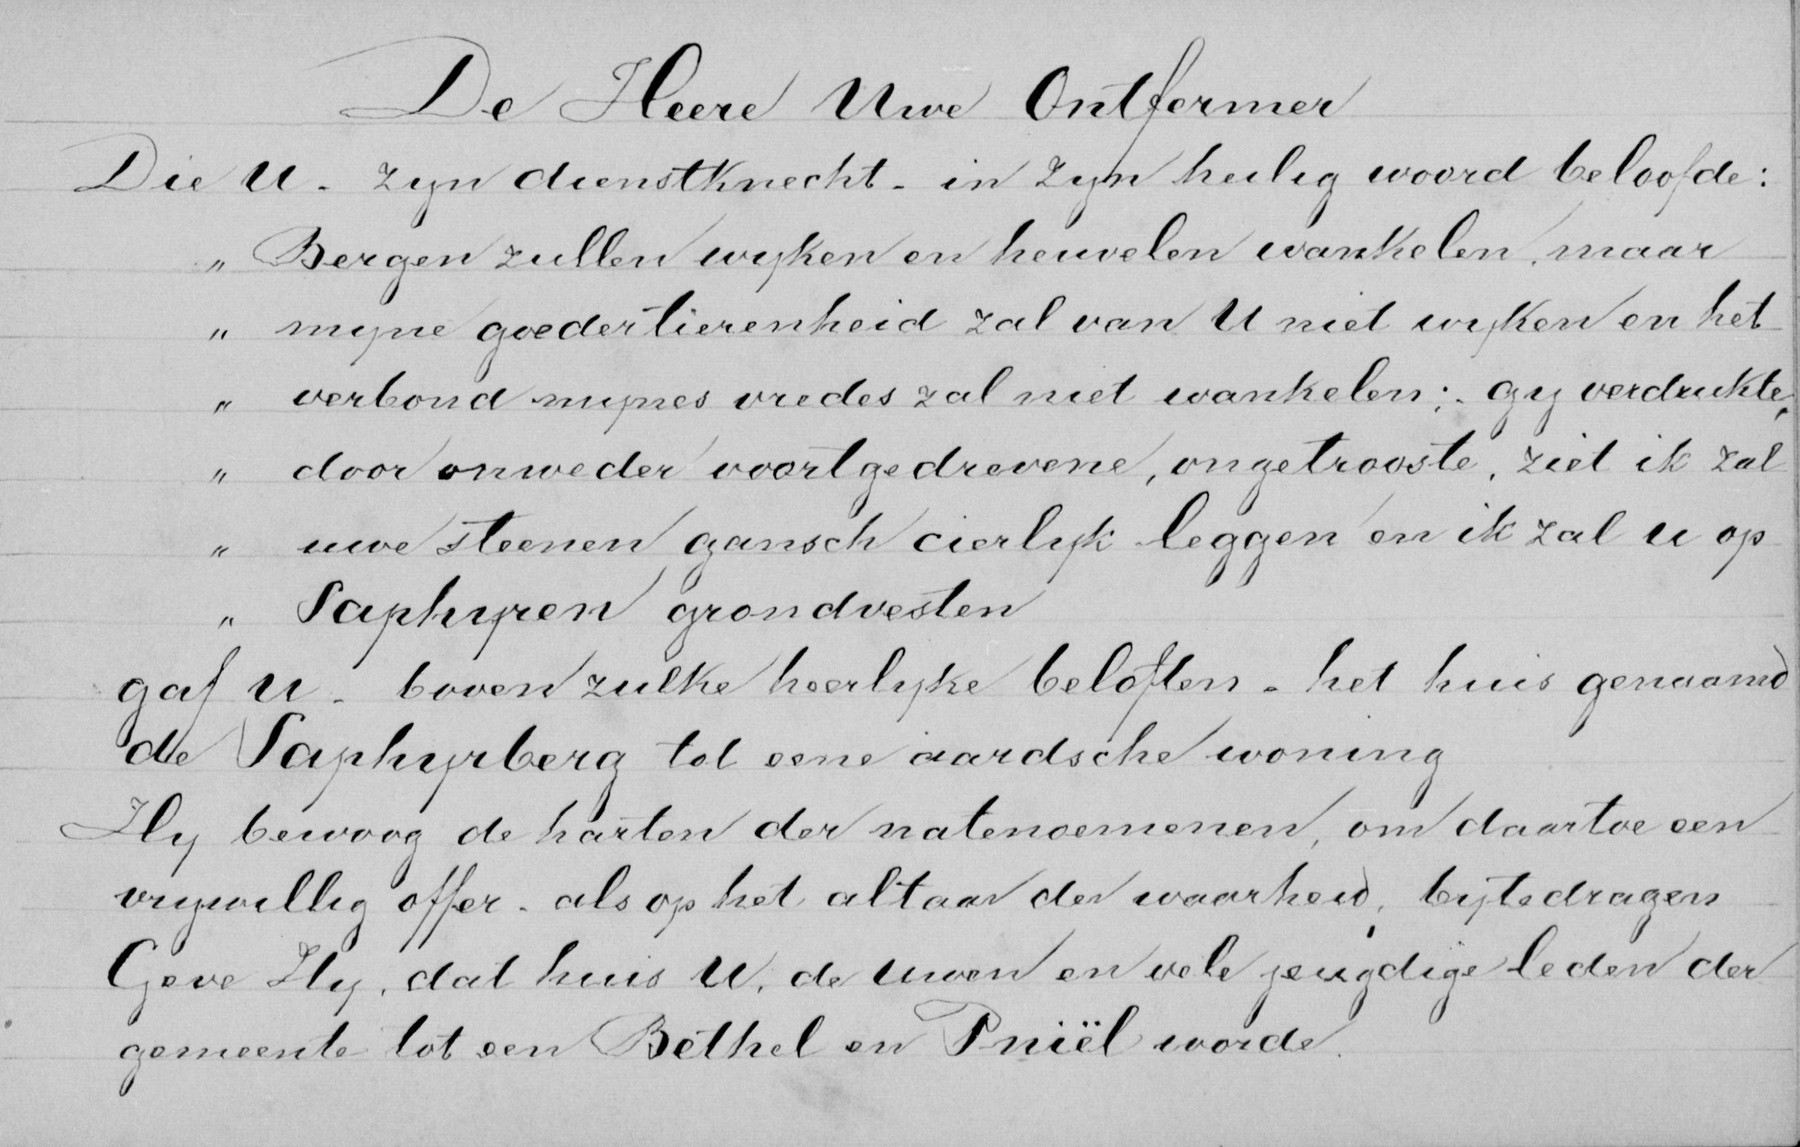 De Heere Uwe Ontfermer
Die U - zyn dienstknecht - in Zyn heilig woord beloofde:
„ Bergen zullen wyken en heuvelen wankelen, maar
„ myne goedertierenheid zal van U niet wyken en het
„ verbond mynes vredes zal niet wankelen; gy verdrukte,
„ door onweder voortgedrevene, ongetrooste, ziet ik zal
„ uwe steenen gansch cierlyk leggen en ik zal u op
„ Saphyren grondvesten
gaf U - boven zulke heerlyke beloften - het huis genaamd
de Saphyrberg tot eene aardsche woning
Hy bewoog de harten der natenoemenen, om daartoe een
vrywillig offer - als op het altaar der waarheid, bytedragen
Geve Hy, dat huis U, de uwen en vele jeugdige leden der
gemeente tot een Bethel en Pniël worde.